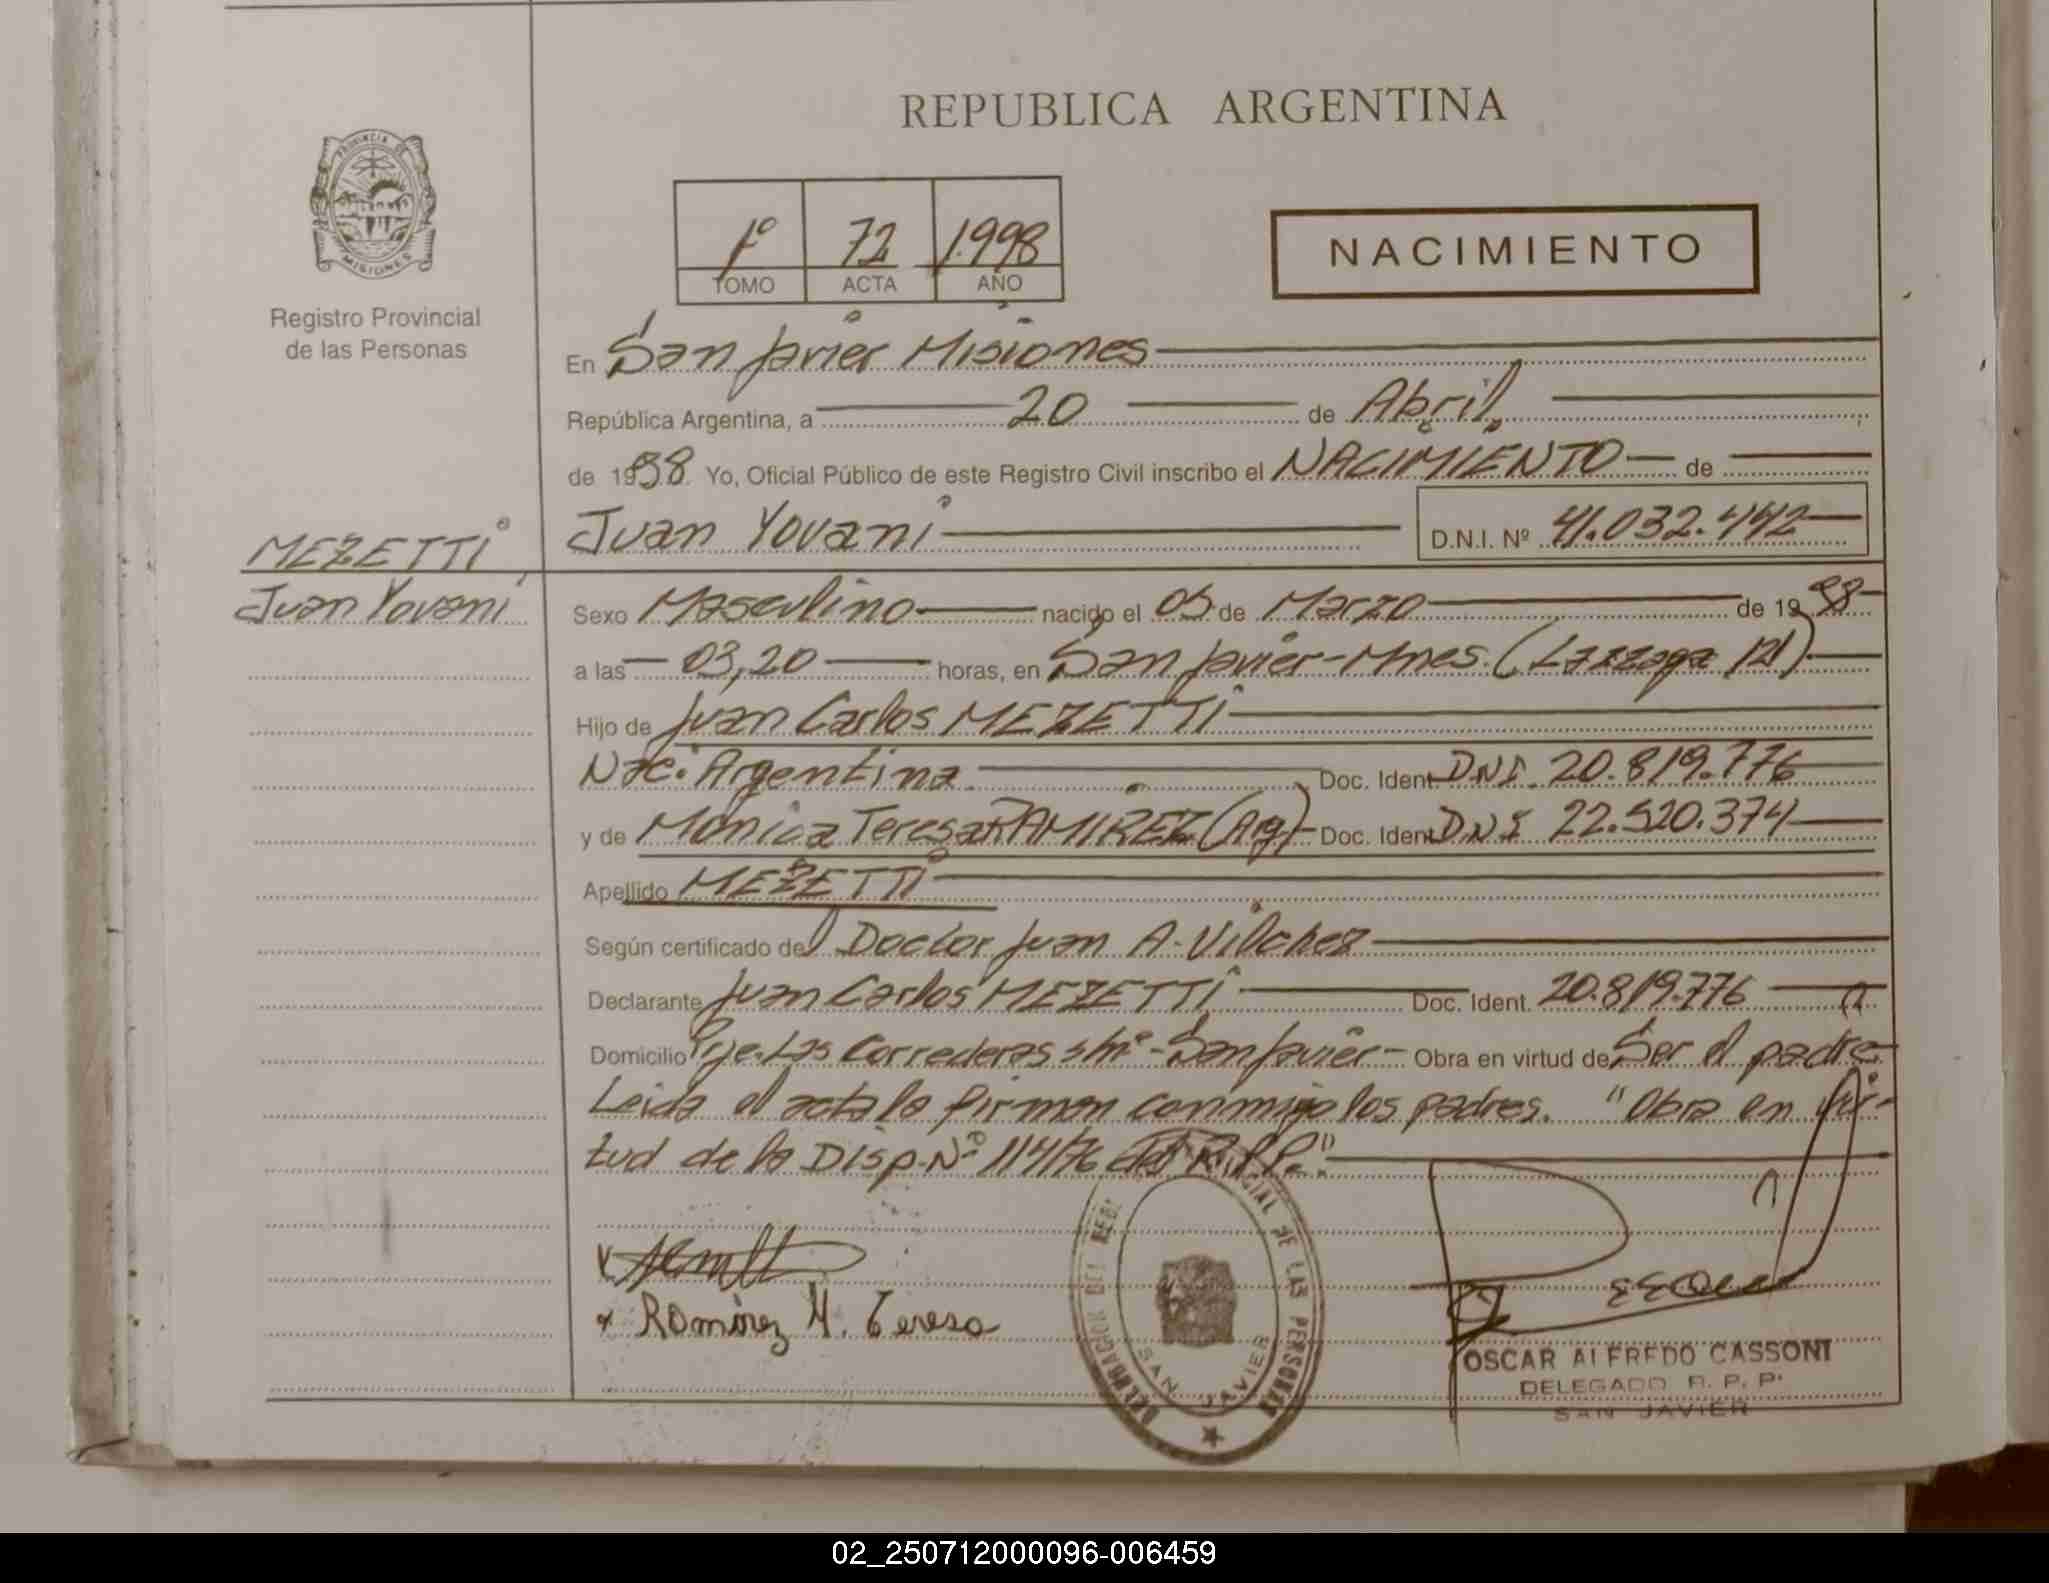 REPUBLICA ARGENTINA
PROVINCIA DE
MISIONES
Registro Provincial
de las Personas
1º 72 1.998
TOMO ACTA AÑO
NACIMIENTO
En San Javier Misiones
República Argentina, a 20 de Abril
de 1998. Yo, Oficial Público de este Registro Civil inscribo el NACIMIENTO de
Juan Yovani D.N.I. Nº 41.032.442
MEZETTI
Juan Yovani
Sexo Masculino nacido el 05 de Marzo de 1998
a las 03,20 horas, en San Javier-Mnes. (Lazzaga 121)
Hijo de Juan Carlos MEZETTI
Nac. Argentina Doc. Ident. DNI. 20.819.776
y de Mónica Teresa RAMIREZ (Arg) Doc. Ident. DNI 22.520.374
Apellido MEZETTI
Según certificado del Doctor Juan A. Vilchez
Declarante Juan Carlos MEZETTI Doc. Ident. 20.819.776
Domicilio Pje. Las Correderas s/nº - San Javier - Obra en virtud de Ser el padre
Leida el acta la firman conmigo los padres. "Obra en vir-
tud de la Disp. Nº 114/76 R.P.P."
Ramirez M. Teresa
DELEGACION DEL REGISTRO PROVINCIAL DE LAS PERSONAS
SAN JAVIER
OSCAR ALFREDO CASSONI
DELEGADO R. P. P.
SAN JAVIER
02_250712000096-006459